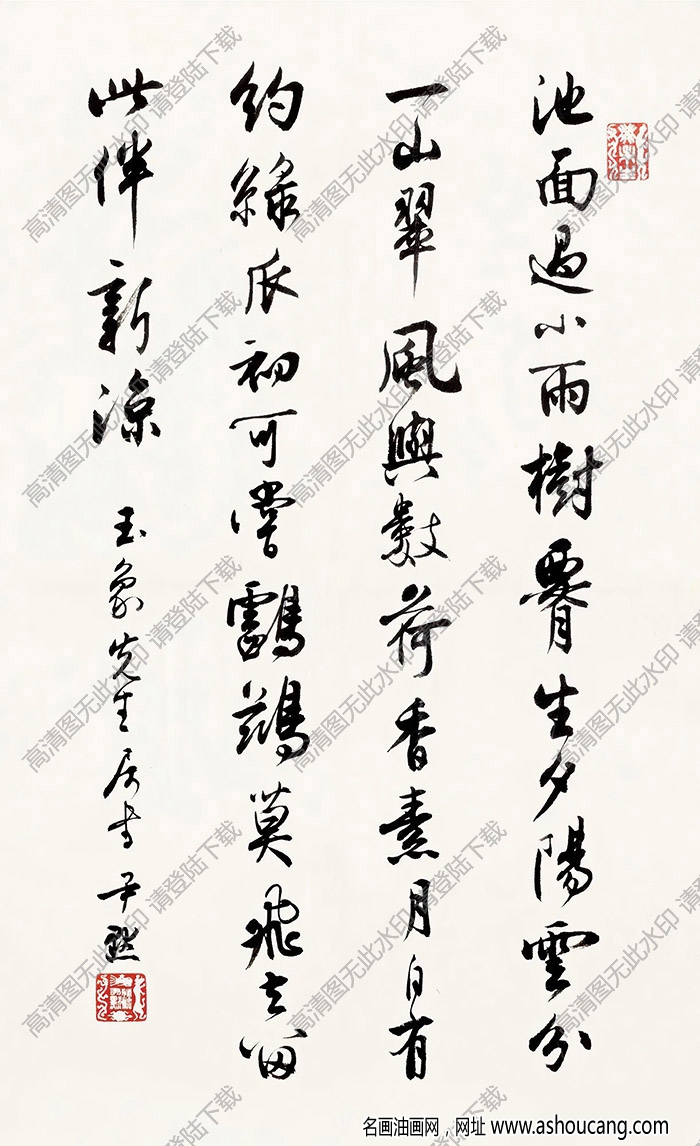 池面過小雨樹脊生夕陽雲分
一山翠風與數荷香素月自有
約綠瓜初可嘗鸕鷀莫飛去留
此伴新涼
玉象先生屬書 尹默
高清图无此水印 请登陆下载
名画油画网，网址 www.ashoucang.com